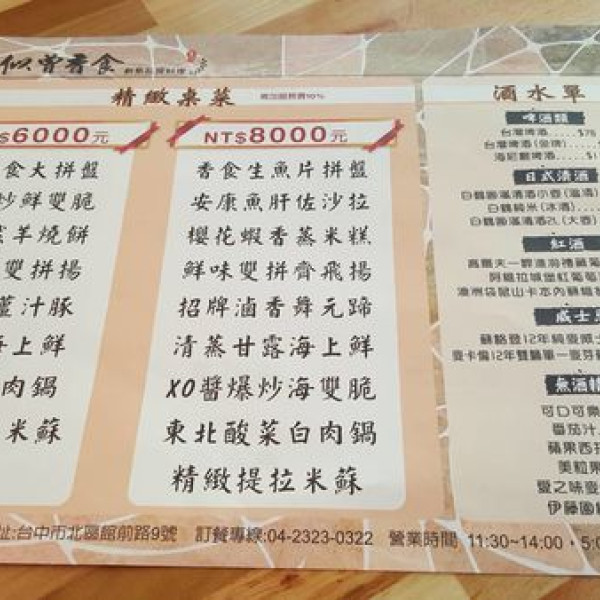 似曾香食
精緻桌菜
NT$8000元
$6000元
香食生魚片拼盤
安康魚肝佐沙拉
櫻花蝦香蒸米糕
鮮味雙拼齊飛揚
招牌滷香舞元蹄
清蒸甘露海上鮮
XO醬爆炒海雙脆
東北酸菜白肉鍋
精緻提拉米蘇
食大拼盤
炒鮮雙脆
羊燒餅
雙拼揚
薑汁豚
海上鮮
肉鍋
米蘇
酒水單
啤酒類
台灣啤酒.....$76
台灣啤酒(金牌)
海尼根啤酒......$1
日式清酒
白鶴圓滿清酒小壺(溫酒)
白鶴純米(冰酒)
白鶴圓滿清酒2L(大壺)
紅酒
阿根廷城堡紅葡萄
澳洲袋鼠山卡本內蘇維
威士
蘇格登12年純麥威士
麥卡倫12年雙獅單一麥芽
無酒精
可口可樂
番茄汁
蘋果西打
美粒果
愛之味麥
伊藤園
址:台中市北區館前路9號 訂餐專線:04-2323-0322 營業時間 11:30~14:00・5:0